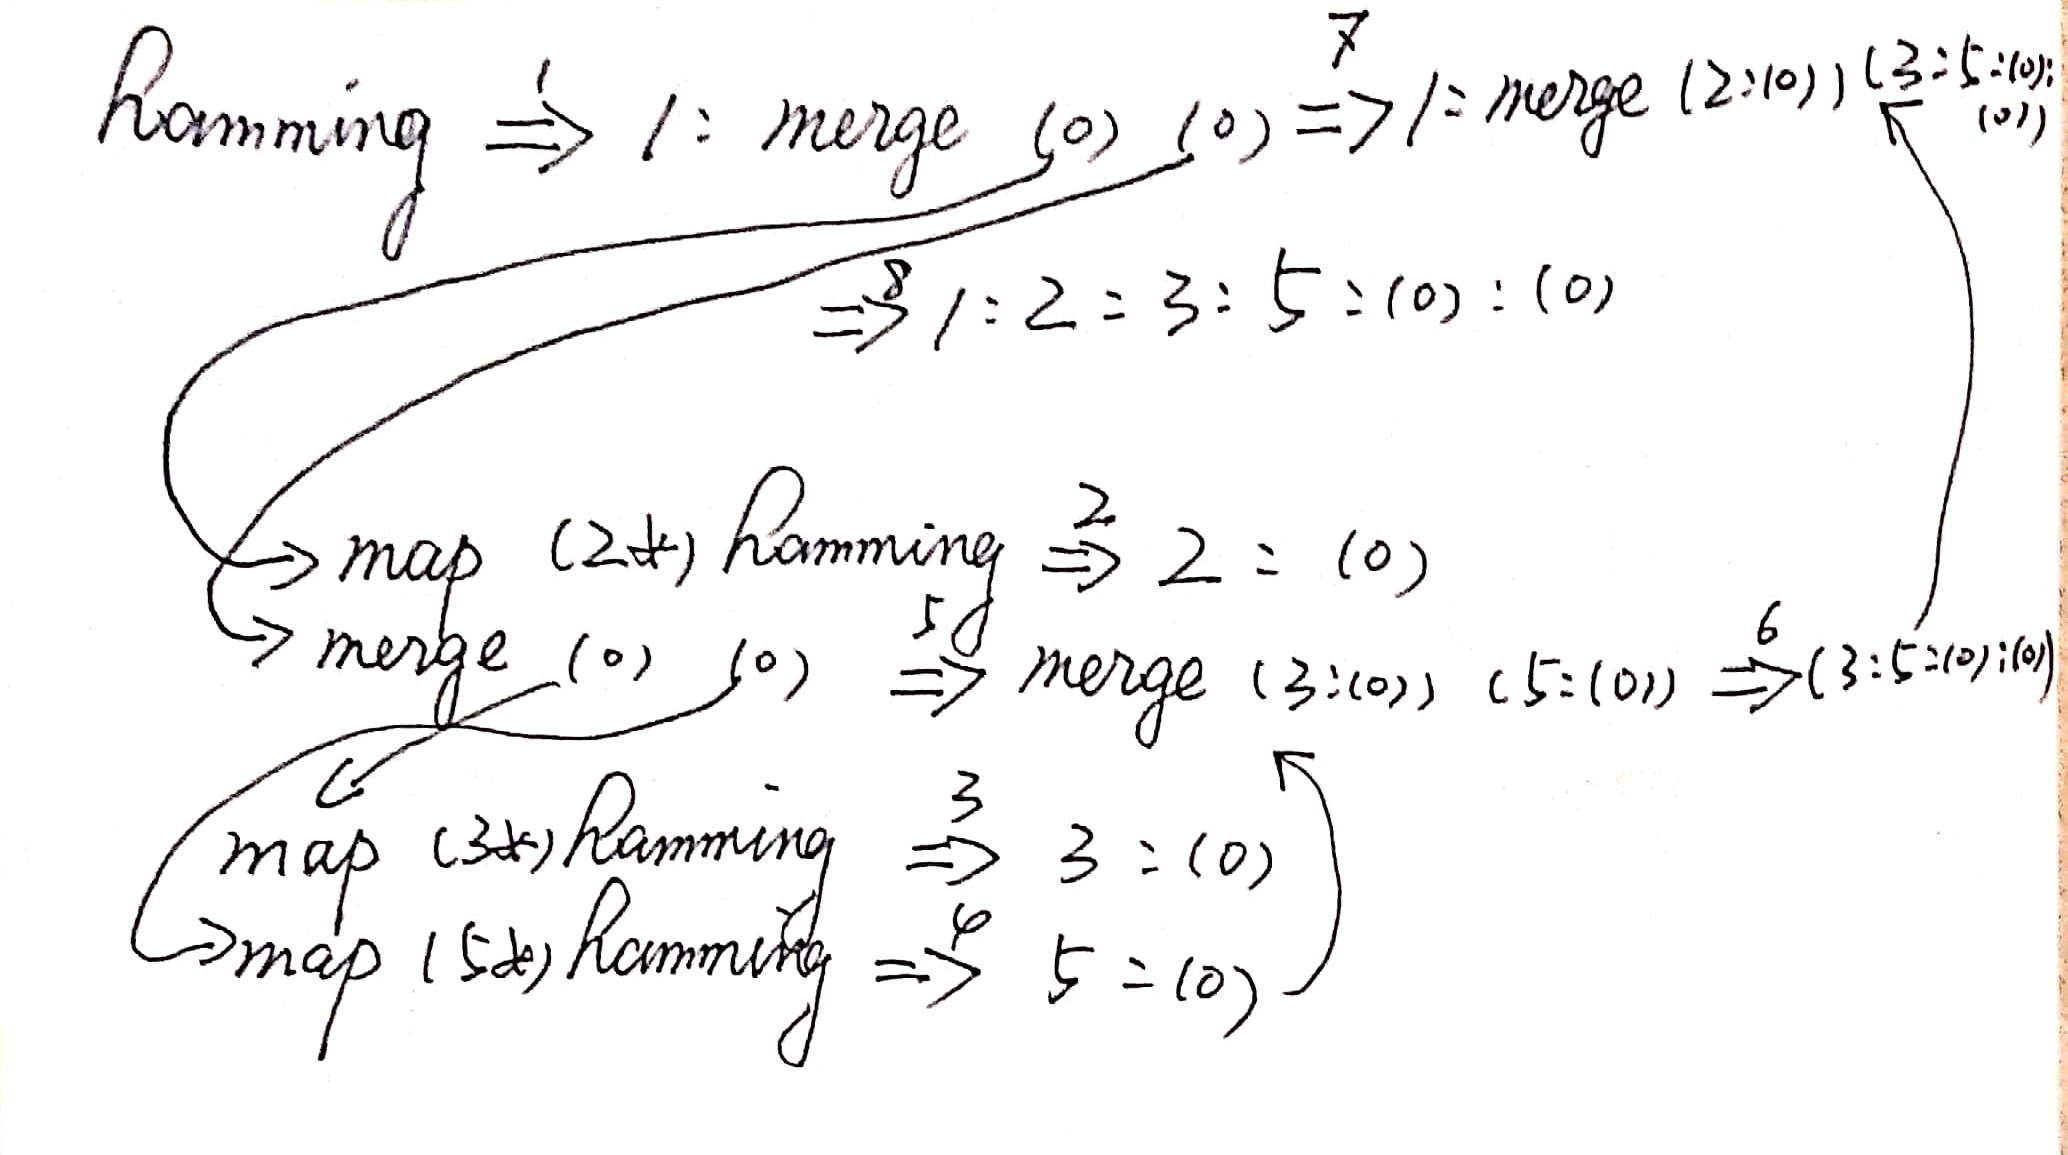 7
hamming ⇒ 1 : merge (0) (0) ⇒ 1 : merge (2:(0)) (3:5:(0):
1
(0))
8
⇒ 1 : 2 : 3 : 5 : (0) : (0)
2
map (2*) hamming ⇒ 2 : (0)
5 6
merge (0) (0) ⇒ merge (3:(0)) (5:(0)) ⇒ (3:5:(0):(0))
3
map (3*) hamming ⇒ 3 : (0)
4
map (5*) hamming ⇒ 5 : (0)